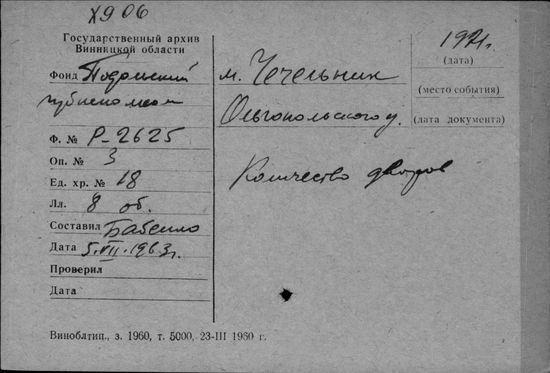 Х906
Государственный архив
Винницкой области
Фонд Подольский
губисполком
Ф. № Р-2625
Оп. № 3
Ед. хр. № 18
Лл. 8 об.
Составил
Дата 5.VII.1963г.
Проверил
Дата
м. Чечельник
Ольгопольского у.
Количество дворов
1921г.
(дата)
(место события)
(дата документа)
Виноблтип., з. 1960, т. 5000, 23-III 1960 г.